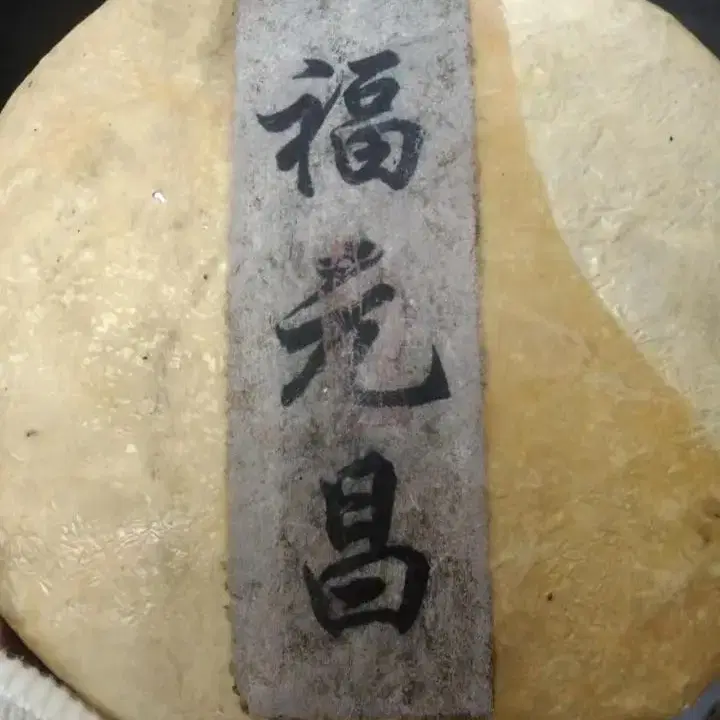 福元昌